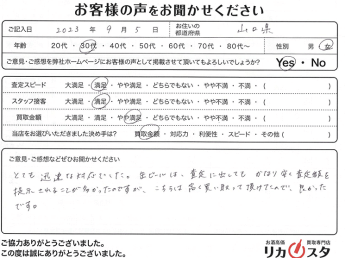 お客様の声をお聞かせください
ご記入日 2023年 9月 5日 お住いの都道府県 山口県
年齢 20代・30代・40代・50代・60代・70代・80代〜 性別 男・女
ご意見・ご感想を弊社ホームページにお客様の声として掲載させて頂いてもよろしいでしょうか? Yes・No
査定スピード 大満足・満足・やや満足・どちらでもない・やや不満・不満・( )
スタッフ接客 大満足・満足・やや満足・どちらでもない・やや不満・不満・( )
買取金額 大満足・満足・やや満足・どちらでもない・やや不満・不満・( )
当店をお選びいただきました決め手は? 買取金額・対応力・利便性・スピード・その他( )
ご意見・ご感想などぜひお聞かせください
とても迅速な対応でした。缶ビールは、査定に出しても かなり安く査定額を
提示されることが多かったのですが、こちらは高く買い取って頂けたので、良かった
です。
ご協力ありがとうございました。
この度は誠にありがとうございました。
お酒高価買取専門店
リカスタ